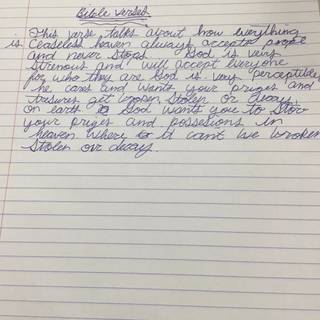 Bible verses
This verse talks about how everything
is Ceaseless heaven always accepts people
and never stops. God is very
Strenous and will accept everyone
for who they are God is very perceptible,
he cares and wants your prizes and
tresures get broken, Stolen or decay,
on earth God wants you to Stor
your prizes and possesions in
heaven where it cant be broken
Stolen or decays.